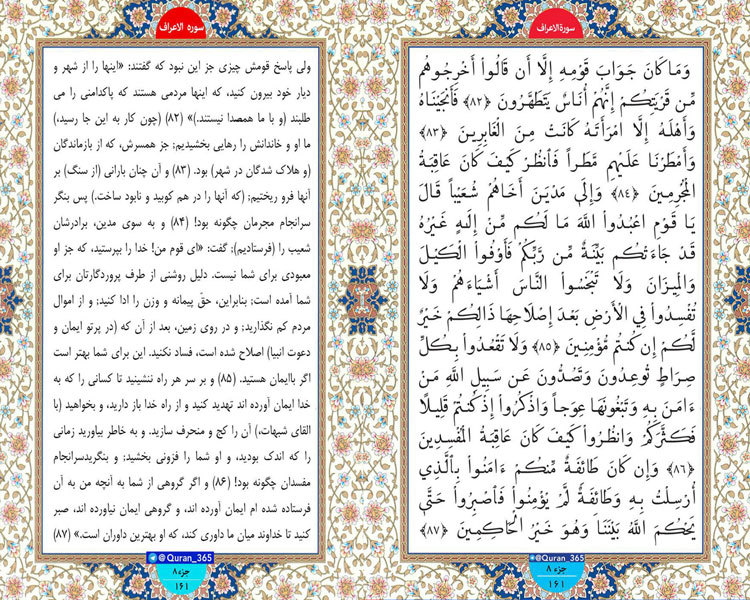 سورة الاعراف
وَمَا كَانَ جَوَابَ قَوْمِهِ إِلَّا أَن قَالُواْ أَخْرِجُوهُم
مِّن قَرْيَتِكُمْ إِنَّهُمْ أُنَاسٌ يَتَطَهَّرُونَ ﴿٨٢﴾ فَأَنجَيْنَاهُ
وَأَهْلَهُ إِلَّا امْرَأَتَهُ كَانَتْ مِنَ الْغَابِرِينَ ﴿٨٣﴾
وَأَمْطَرْنَا عَلَيْهِم مَّطَراً فَانظُرْ كَيْفَ كَانَ عَاقِبَةُ
الْمُجْرِمِينَ ﴿٨٤﴾ وَإِلَى مَدْيَنَ أَخَاهُمْ شُعَيْباً قَالَ
يَا قَوْمِ اعْبُدُواْ اللَّهَ مَا لَكُم مِّنْ إِلَهٍ غَيْرُهُ
قَدْ جَاءَتْكُم بَيِّنَةٌ مِّن رَّبِّكُمْ فَأَوْفُواْ الْكَيْلَ
وَالْمِيزَانَ وَلَا تَبْخَسُواْ النَّاسَ أَشْيَاءَهُمْ وَلَا
تُفْسِدُواْ فِي الْأَرْضِ بَعْدَ إِصْلَاحِهَا ذَالِكُمْ خَيْرٌ
لَّكُمْ إِن كُنتُم مُّؤْمِنِينَ ﴿٨٥﴾ وَلَا تَقْعُدُواْ بِكُلِّ
صِرَاطٍ تُوعِدُونَ وَتَصُدُّونَ عَن سَبِيلِ اللَّهِ مَنْ
ءَامَنَ بِهِ وَتَبْغُونَهَا عِوَجاً وَاذْكُرُواْ إِذْ كُنتُمْ قَلِيلًا
فَكَثَّرَكُمْ وَانظُرُواْ كَيْفَ كَانَ عَاقِبَةُ الْمُفْسِدِينَ
﴿٨٦﴾ وَإِن كَانَ طَائِفَةٌ مِّنكُمْ ءَامَنُواْ بِالَّذِي
أُرْسِلْتُ بِهِ وَطَائِفَةٌ لَّمْ يُؤْمِنُواْ فَاصْبِرُواْ حَتَّى
يَحْكُمَ اللَّهُ بَيْنَنَا وَهُوَ خَيْرُ الْحَاكِمِينَ ﴿٨٧﴾
@Quran_365
جزء ٨
١٦١
سوره الاعراف
ولی پاسخ قومش چیزی جز این نبود که گفتند: «اینها را از شهر و
دیار خود بیرون کنید، که اینها مردمی هستند که پاکدامنی را می
طلبند (و با ما همصدا نیستند.)» (۸۲) (چون کار به این جا رسید،)
ما او و خاندانش را رهایی بخشیدیم؛ جز همسرش، که از بازماندگان
(و هلاک شدگان در شهر) بود. (۸۳) و آن چنان بارانی (از سنگ) بر
آنها فرو ریختیم؛ (که آنها را در هم کوبید و نابود ساخت.) پس بنگر
سرانجام مجرمان چگونه بود! (۸۴) و به سوی مدین، برادرشان
شعیب را (فرستادیم)؛ گفت: «ای قوم من! خدا را بپرستید، که جز او
معبودی برای شما نیست. دلیل روشنی از طرف پروردگارتان برای
شما آمده است؛ بنابراین، حقّ پیمانه و وزن را ادا کنید؛ و از اموال
مردم کم نگذارید؛ و در روی زمین، بعد از آن که (در پرتو ایمان و
دعوت انبیا) اصلاح شده است، فساد نکنید. این برای شما بهتر است
اگر باایمان هستید. (۸۵) و بر سر هر راه ننشینید تا کسانی را که به
خدا ایمان آورده اند تهدید کنید و از راه خدا باز دارید، و بخواهید (با
القای شبهات،) آن را کج و منحرف سازید. و به خاطر بیاورید زمانی
را که اندک بودید، و او شما را فزونی بخشید؛ و بنگریدسرانجام
مفسدان چگونه بود! (۸۶) و اگر گروهی از شما به آنچه من به آن
فرستاده شده ام ایمان آورده اند، و گروهی ایمان نیاورده اند، صبر
کنید تا خداوند میان ما داوری کند، که او بهترین داوران است.» (۸۷)
@Quran_365
جزء ۸
۱۶۱